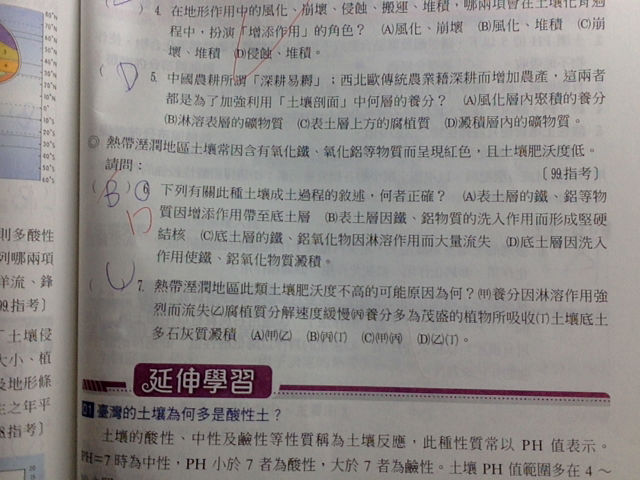 4. 在地形作用中的風化、崩壞、侵蝕、搬運、堆積，哪兩項會在土壤化育過
程中，扮演「增添作用」的角色？ (A)風化、崩壞 (B)風化、堆積 (C)崩
壞、堆積 (D)侵蝕、堆積。
(D) 5. 中國農耕所謂「深耕易耨」；西北歐傳統農業藉深耕而增加農產，這兩者
都是為了加強利用「土壤剖面」中何層的養分？ (A)風化層內聚積的養分
(B)淋溶表層的礦物質 (C)表土層上方的腐植質 (D)澱積層內的礦物質。
◎熱帶溼潤地區土壤常因含有氧化鐵、氧化鋁等物質而呈現紅色，且土壤肥沃度低。
請問： 〔99.指考〕
(B) 6. 下列有關此種土壤成土過程的敘述，何者正確？ (A)表土層的鐵、鋁等物
D 質因增添作用帶至底土層 (B)表土層因鐵、鋁物質的洗入作用而形成堅硬
結核 (C)底土層的鐵、鋁氧化物因淋溶作用而大量流失 (D)底土層因洗入
作用使鐵、鋁氧化物質澱積。
7. 熱帶溼潤地區此類土壤肥沃度不高的可能原因為何？(甲)養分因淋溶作用強
烈而流失(乙)腐植質分解速度緩慢(丙)養分多為茂盛的植物所吸收(丁)土壤底土
多石灰質澱積 (A)(甲)(乙) (B)(丙)(丁) (C)(甲)(丙) (D)(乙)(丁)。
延伸學習
01 臺灣的土壤為何多是酸性土？
土壤的酸性、中性及鹼性等性質稱為土壤反應，此種性質常以 PH 值表示。
PH＝7 時為中性，PH 小於 7 者為酸性，大於 7 者為鹼性。土壤 PH 值範圍多在 4～
60°N
50°N
40°N
30°N
20°N
10°N
0°
10°S
20°S
30°S
40°S
50°S
60°S
則多酸性
列哪兩項
洋流、鋒
99.指考〕
「土壤侵
大小、植
及地形條
生之年平
8.指考〕